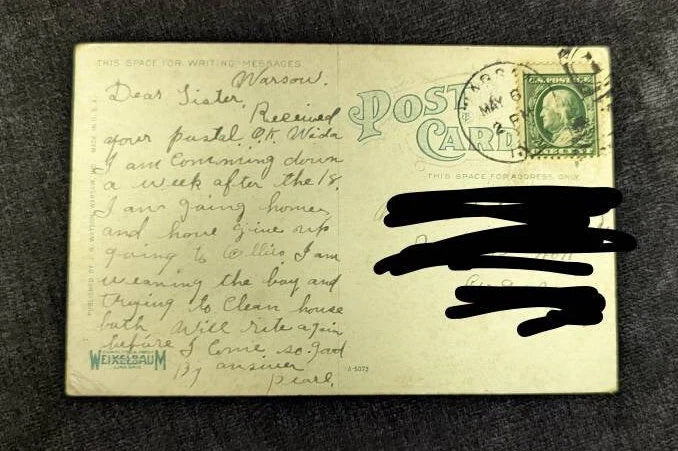 THIS SPACE FOR WRITING MESSAGES
Warsow.
Dear Sister,
Received
your postal O.K. Wida
I am Comming down
a week after the 18.
I am going home
and have give up
going to I am
weaning the boy and
trying to Clean house
both Will rite again
before I Come so good
By answer
Pearl.
WEIXELBAUM
A-5073
POST
CARD
MAY
2 PM
U.S. POSTAGE
THIS SPACE FOR ADDRESS ONLY
MADE IN U.S.A.
PUBLISHED BY